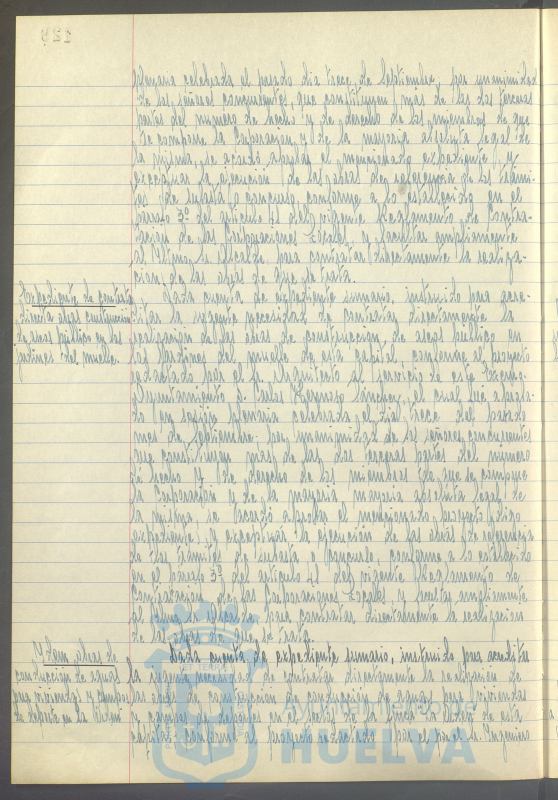 plenaria celebrada el pasado dia trece de Septiembre, por unanimidad
de los señores concurrentes, que constituyen mas de las dos terceras
partes del número de hecho y de derecho de los miembros de que
se compone la Corporación, y de la mayoria absoluta legal de
la misma, se acordó aprobar el mencionado expediente, y
exceptuar la ejecución de las obras de referencia de los trámi-
tes de subasta o concurso, conforme a lo establecido en el
parrafo 3º del articulo 41 del vigente Reglamento de Contra-
tación de las Corporaciones Locales, y facultar ampliamente
al Iltmo. Sr. Alcalde para contratar directamente la realiza-
cion de las obras de que se trata.
Expediente de contrata
directa obras construcción
de aseos público en los
jardines del muelle.
Dada cuenta de expediente sumario, instruido para acre-
ditar la urgente necesidad de contratar directamente la
realización de las obras de construcción de aseos público en
los Jardines del muelle de esta capital, conforme al proyecto
redactado por el Sr. Arquitecto al servicio de este Excmo.
Ayuntamiento D. Carlos Hermoso Sánchez, el cual fué aproba-
do en sesión plenaria celebrada el dia trece del pasado
mes de Septiembre, por unanimidad de los señores concurrentes
que constituyen mas de las dos terceras partes del número
de hecho y de derecho de los miembros de que se compone
la Corporación y de la mayoria mayoria absoluta legal de
la misma, se acordó aprobar el mencionado proyecto digo
expediente, y exceptuar la ejecución de las obras de referencia
de los trámites de subasta o concurso, conforme a lo establecido
en el parrafo 3º del articulo 41 del vigente Reglamento de
Contratación de las Corporaciones Locales, y facultar ampliamente
al Iltmo. Sr. Alcalde para contratar directamente la realización
de las obras de que se trata.
Idem, obras de
conducción de aguas
para viviendas y campos
de deporte en la Orden
Dada cuenta de expediente sumario, instruido para acreditar
la urgente necesidad de contratar directamente la realización de
las obras de construcción de conducción de aguas para viviendas
y campos de deportes en el sector de la finca La Orden de esta
capital, conforme al proyecto redactado por el Sr. Ingeniero
Ayuntamiento de
HUELVA